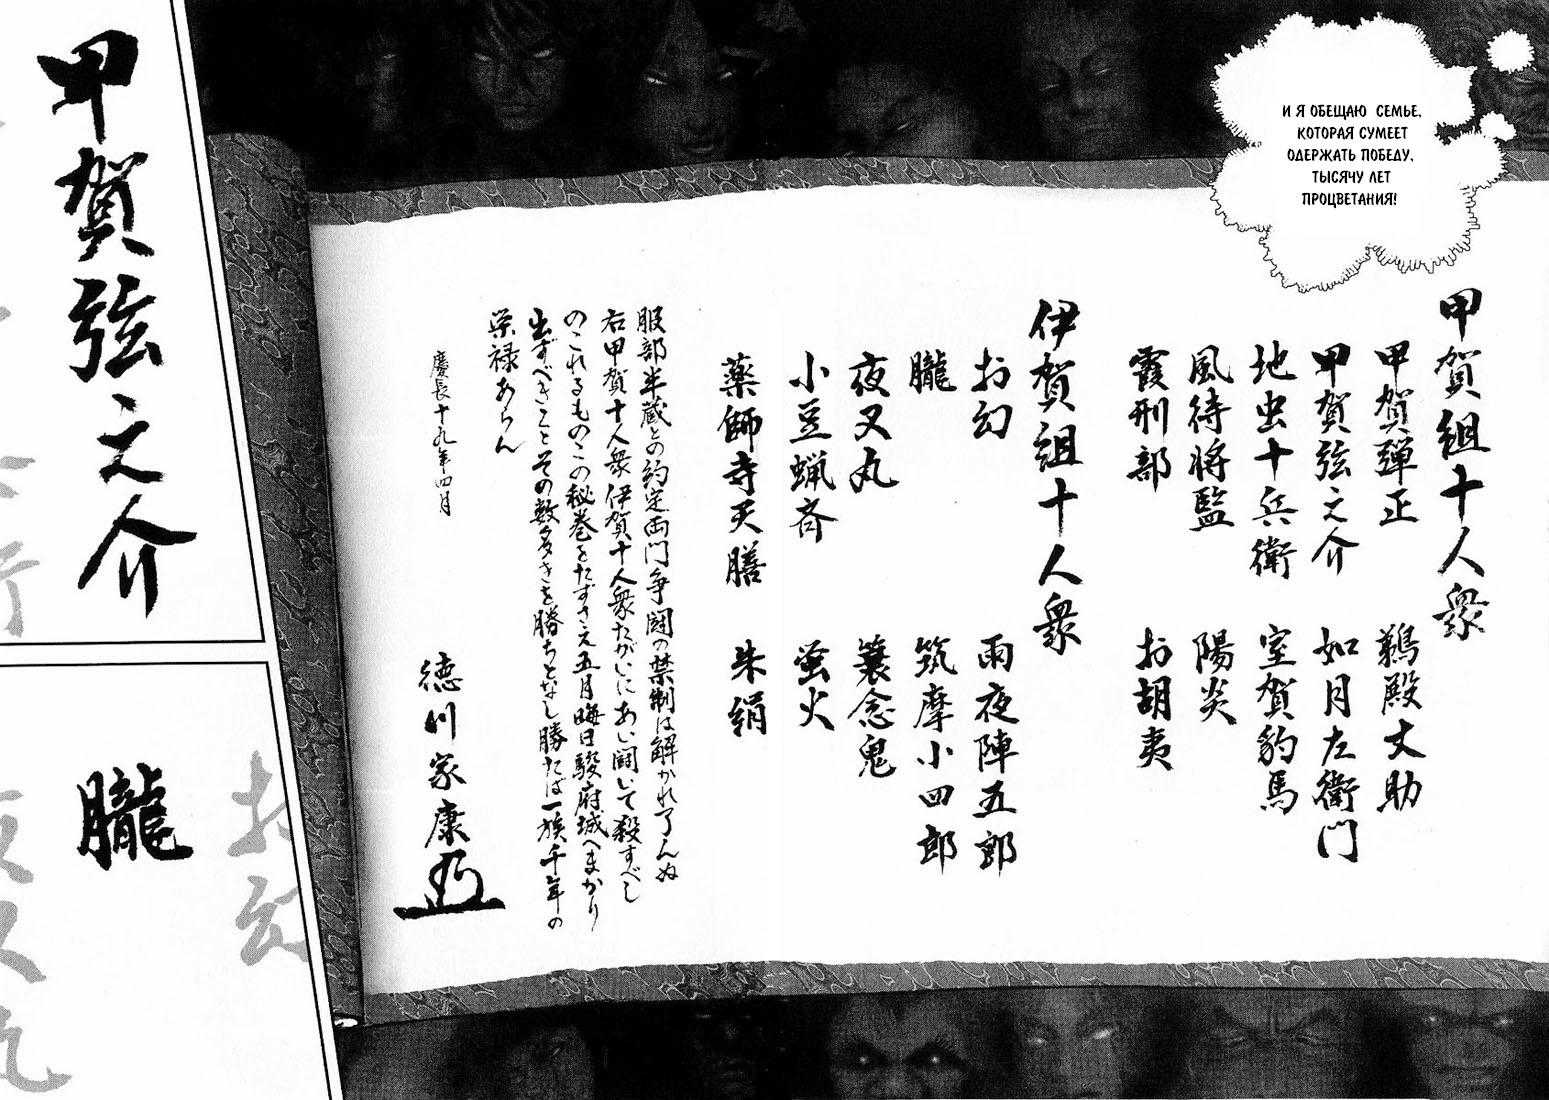 И Я ОБЕЩАЮ СЕМЬЕ,
КОТОРАЯ СУМЕЕТ
ОДЕРЖАТЬ ПОБЕДУ,
ТЫСЯЧУ ЛЕТ
ПРОЦВЕТАНИЯ!
甲賀組十人衆
甲賀弾正
鵜殿丈助
甲賀弦之介
如月左衛門
地虫十兵衛
室賀豹馬
風待将監
陽炎
霞刑部
お胡夷
伊賀組十人衆
お幻
雨夜陣五郎
朧
筑摩小四郎
夜叉丸
簔念鬼
小豆蝋斉
蛍火
薬師寺天膳
朱絹
服部半蔵との約定両門争闘の禁制は解かれ了んぬ
右甲賀十人衆伊賀十人衆たがいにあい闘いて殺すべし
のこれるものこの秘巻をたずさえ五月晦日駿府城へまかり
出ずべきことその数多きを勝ちとなし勝たば一族千年の
栄禄あらん
慶長十九年四月
徳川家康
甲賀弦之介
朧